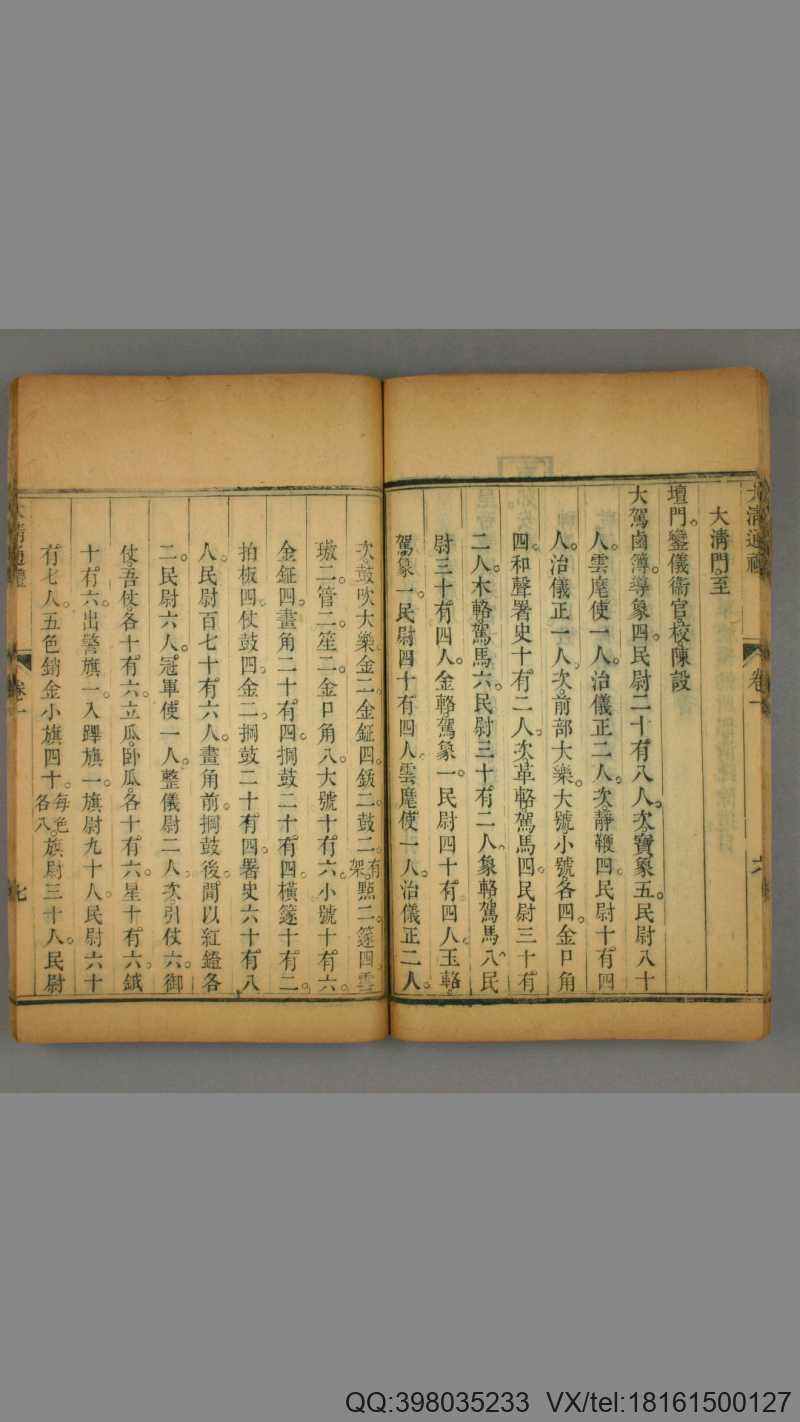 大清通禮 卷一 六
大淸門。至
壇門。鑾儀衞官校陳設
大駕鹵簿。導象四。民尉二十有八人。次寶象五。民尉八十
人。雲麾使一人。治儀正二人。次靜鞭四。民尉十有四
人。治儀正一人。次前部大樂。大號小號各四。金口角
四。和聲署史十有二人。次革輅駕馬四。民尉三十有
二人。木輅駕馬六。民尉三十有二人。象輅駕馬八。民
尉三十有四人。金輅駕象一。民尉四十有四人。玉輅
駕象一。民尉四十有四人。雲麾使一人。治儀正二人。
次鼓吹大樂。金二。金鉦四。鈸二。鼓二。有架。㸃二。篴四。雲
璈二。管二。笙二。金口角八。大號十有六。小號十有六。
金鉦四。畫角二十有四。掆鼓二十有四。橫篴十有二。
拍板四。仗鼓四。金二。掆鼓二十有四。署史六十有八
人。民尉百七十有六人。畫角前。掆鼓後。間以紅鐙各
二。民尉六人。冠軍使一人。整儀尉二人。次引仗六。御
仗吾仗各十有六。立瓜。臥瓜。各十有六。星十有六。鉞
十有六。出警旗一。入蹕旗一。旗尉九十人。民尉六十
有七人。五色銷金小旗四十。每色各八。旗尉三十人。民尉
大淸通禮 卷一 七
QQ:398035233 VX/tel:18161500127